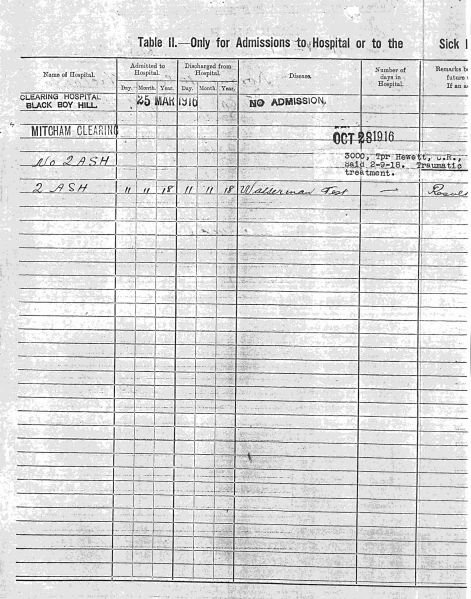 Table II.—Only for Admissions to Hospital or to the Sick
Name of Hospital.
Admitted to Hospital.
Discharged from Hospital.
Disease.
Number of days in Hospital.
Remarks
future
If an
Day. Month. Year. Day. Month. Year.
CLEARING HOSPITAL
BLACK BOY HILL.
25 MAR 1916
NO ADMISSION.
MITCHAM CLEARING
OCT 28 1916
No 2 ASH
3000, Tpr Hewett, J.R.,
said 2-9-18. Traumatic
treatment.
2 ASH " " 18 " " 18 Wasserman Test —